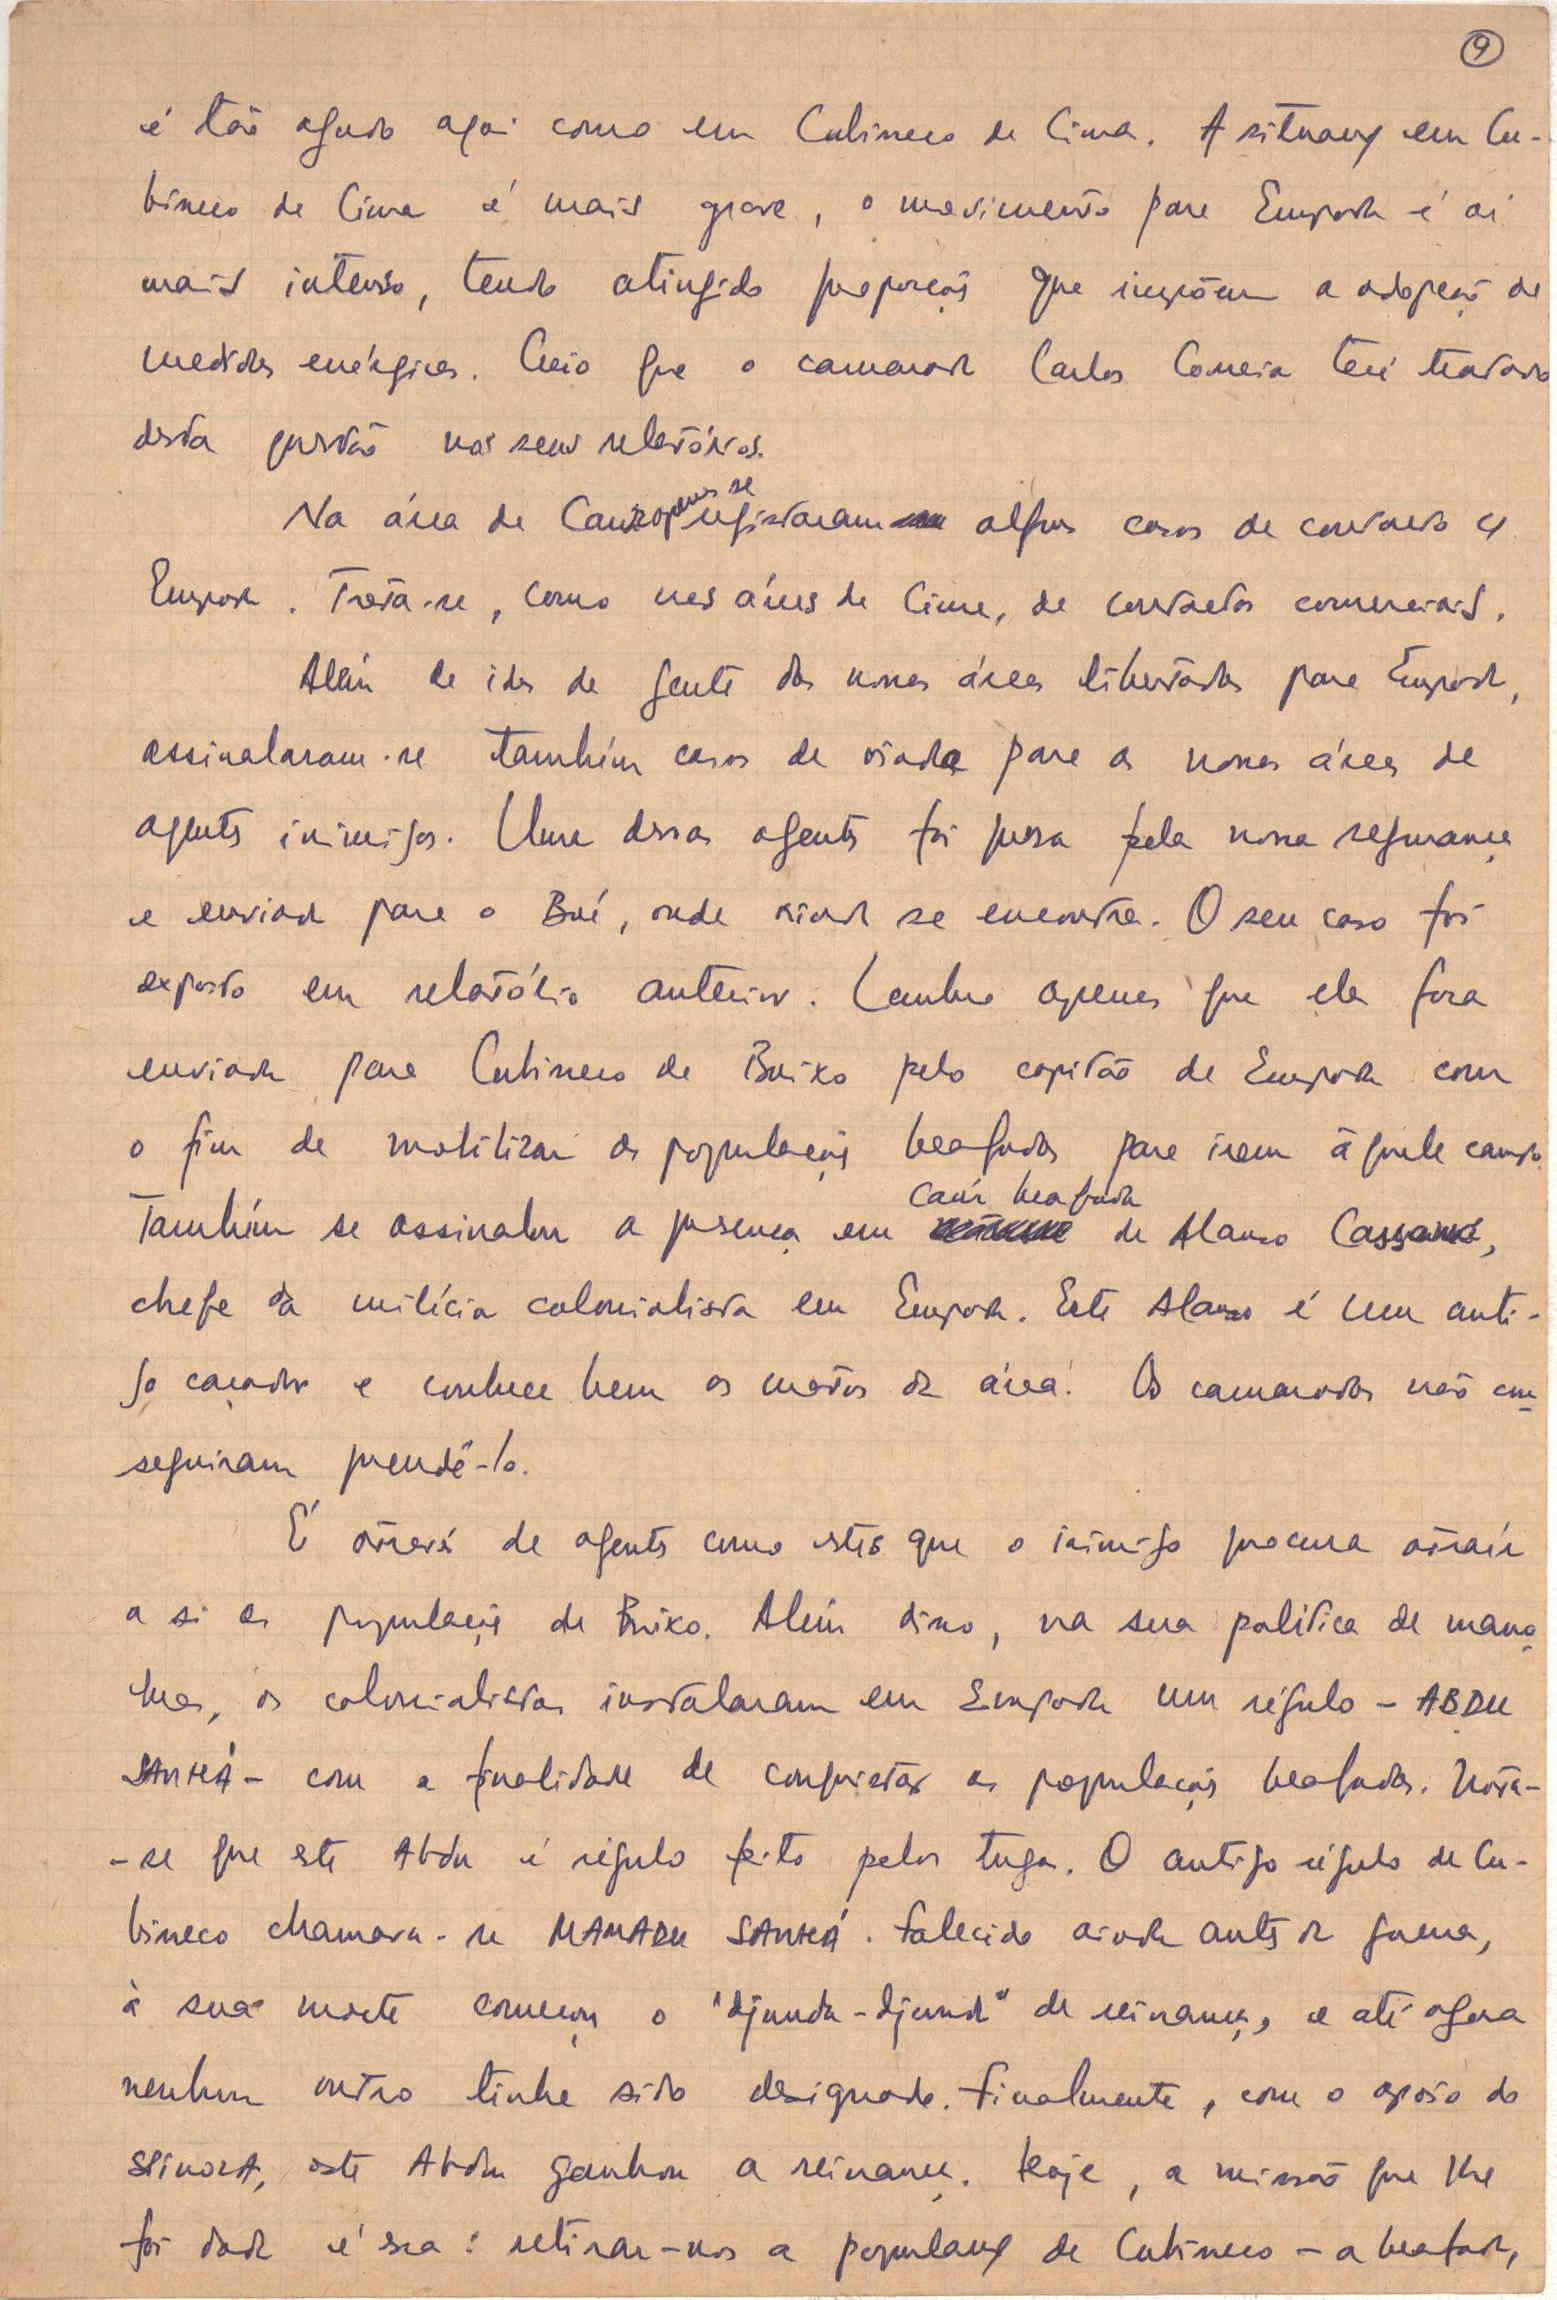 9
é tão agudo aqui como em Cubineco de Cima. A situação em Cu-
bineco de Cima é mais grave, o movimento para Empada é aí
mais intenso, tendo atingido proporções que impõem a adopção de
medidas enérgicas. Creio que o camarada Carlos Correia terá tratado
desta questão nos seus relatórios.
Na área de apenas se registaram alguns casos de contacto c/
Empada. Trata-se, como nas áreas de Cima, de contactos comerciais.
Além de idas de gente das nossas áreas libertadas para Empada,
assinalaram-se também casos de vinda para as nossas áreas de
agentes inimigos. Uma dessas agentes foi presa pela nossa segurança
e enviada para o Boé, onde ainda se encontra. O seu caso foi
exposto em relatório anterior. Lembro apenas que ela fora
enviada para Cubineco de Baixo pelo capitão de Empada com
o fim de mobilizar as populações beafadas para irem àquele campo.
Também se assinalou a presença em Caúr beafada de Alanso Cassamá,
chefe da milícia colonialista em Empada. Este Alanso é um anti-
go caçador e conhece bem os matos da área. Os camaradas não con
seguiram prendê-lo.
É através de agentes como estes que o inimigo procura atraír
a si as populações de Baixo. Além disso, na sua política de mano
bras, os colonialistas instalaram em Empada um régulo - ABDU
SANHÁ - com a finalidade de conquistar as populações beafadas. Nota-
-se que este Abdu é régulo feito pelos tugas. O antigo régulo de Cu-
bineco chamava-se MAMADU SANHÁ. Falecido ainda antes da guerra,
à sua morte começou o "djunda-djunda" de reinança, e até agora
nenhum outro tinha sido designado. Finalmente, com o apoio do
SPINOLA, este Abdu ganhou a reinança. Hoje, a missão que lhe
foi dada é essa: retirar-nos a população de Cubineco - a beafada,